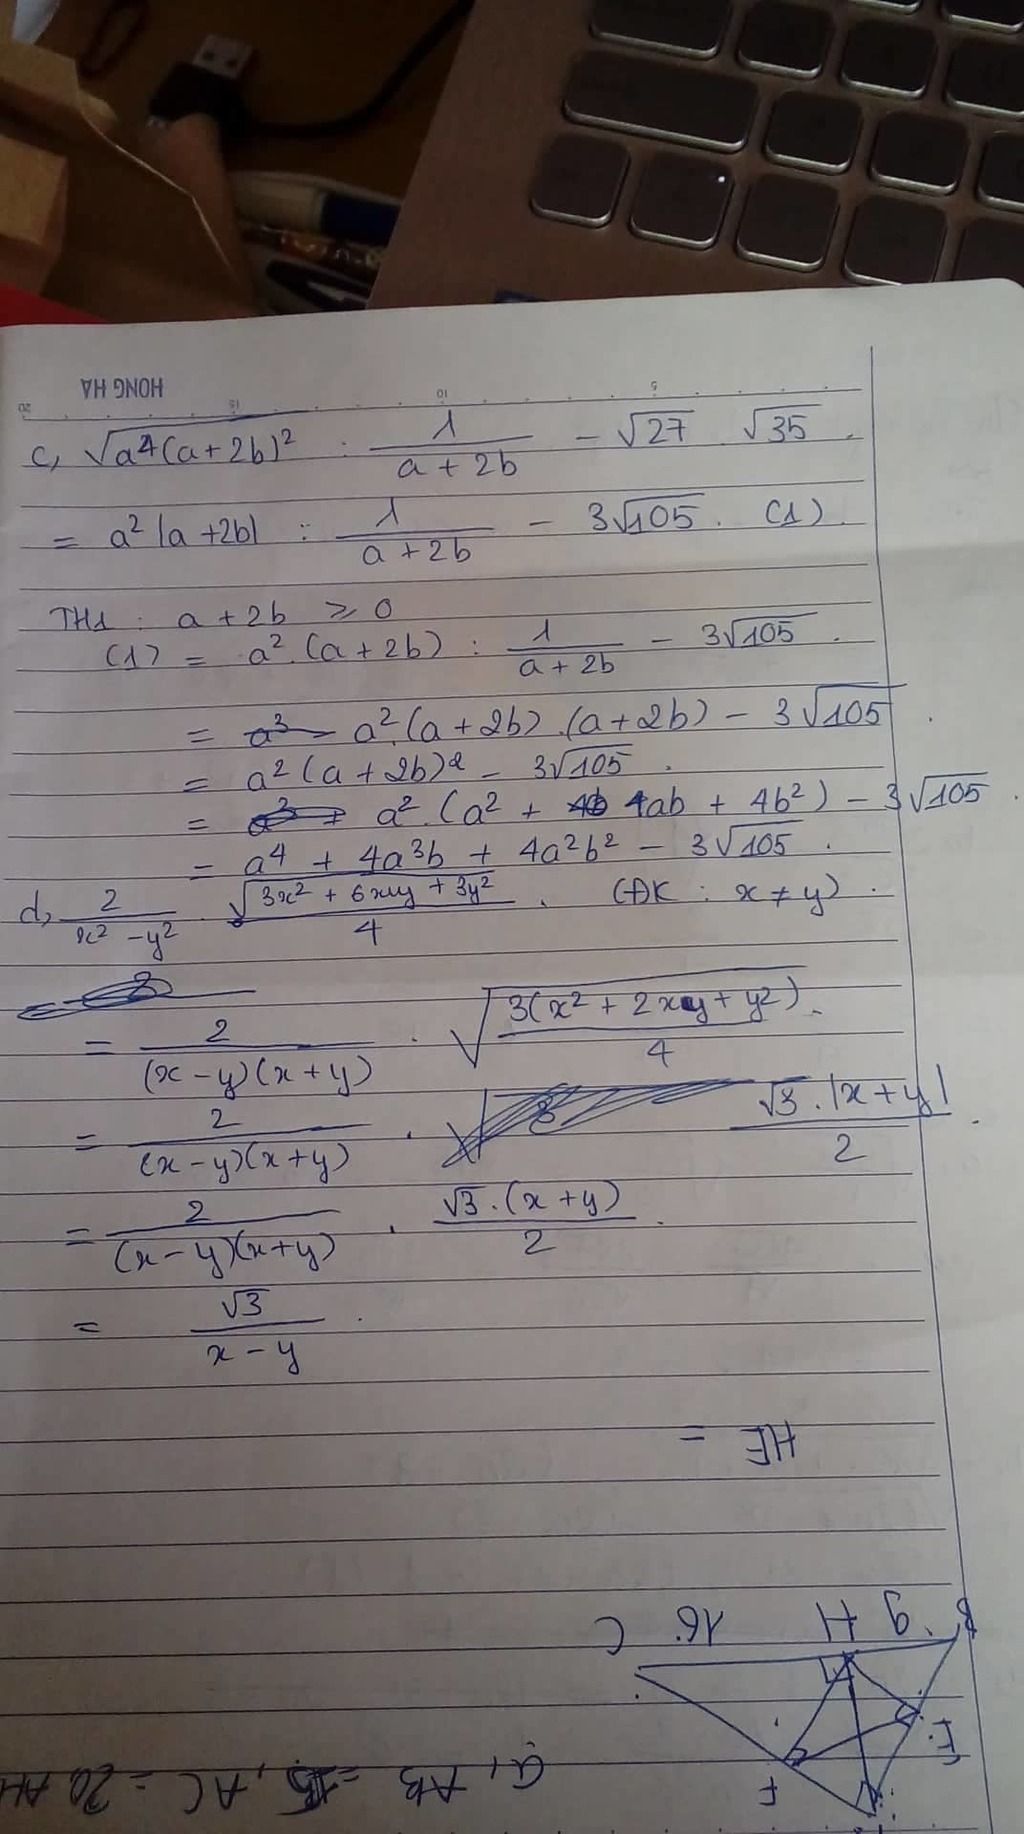 HONG HA
20 15 10 5
c, √a⁴(a + 2b)² : 1/(a + 2b) - √27 √35 .
= a² |a + 2b| : 1/(a + 2b) - 3√105 . (1)
TH1 : a + 2b ≥ 0
(1) = a² . (a + 2b) : 1/(a + 2b) - 3√105 .
= a² . (a + 2b) . (a + 2b) - 3√105 .
= a² (a + 2b)² - 3√105 .
= a² . (a² + 4ab + 4b²) - 3√105 .
= a⁴ + 4a³b + 4a²b² - 3√105 .
d, 2/(x² - y²) . √(3x² + 6xy + 3y²)/4 . (ĐK : x ≠ y) .
= 2/((x - y)(x + y)) . √(3(x² + 2xy + y²)/4) .
= 2/((x - y)(x + y)) . √3 . |x + y|/2 .
= 2/((x - y)(x + y)) . √3 . (x + y)/2 .
= √3/(x - y) .
HF =
B 9 H 16 C
E
F
a, AB = 15, AC = 20 AH